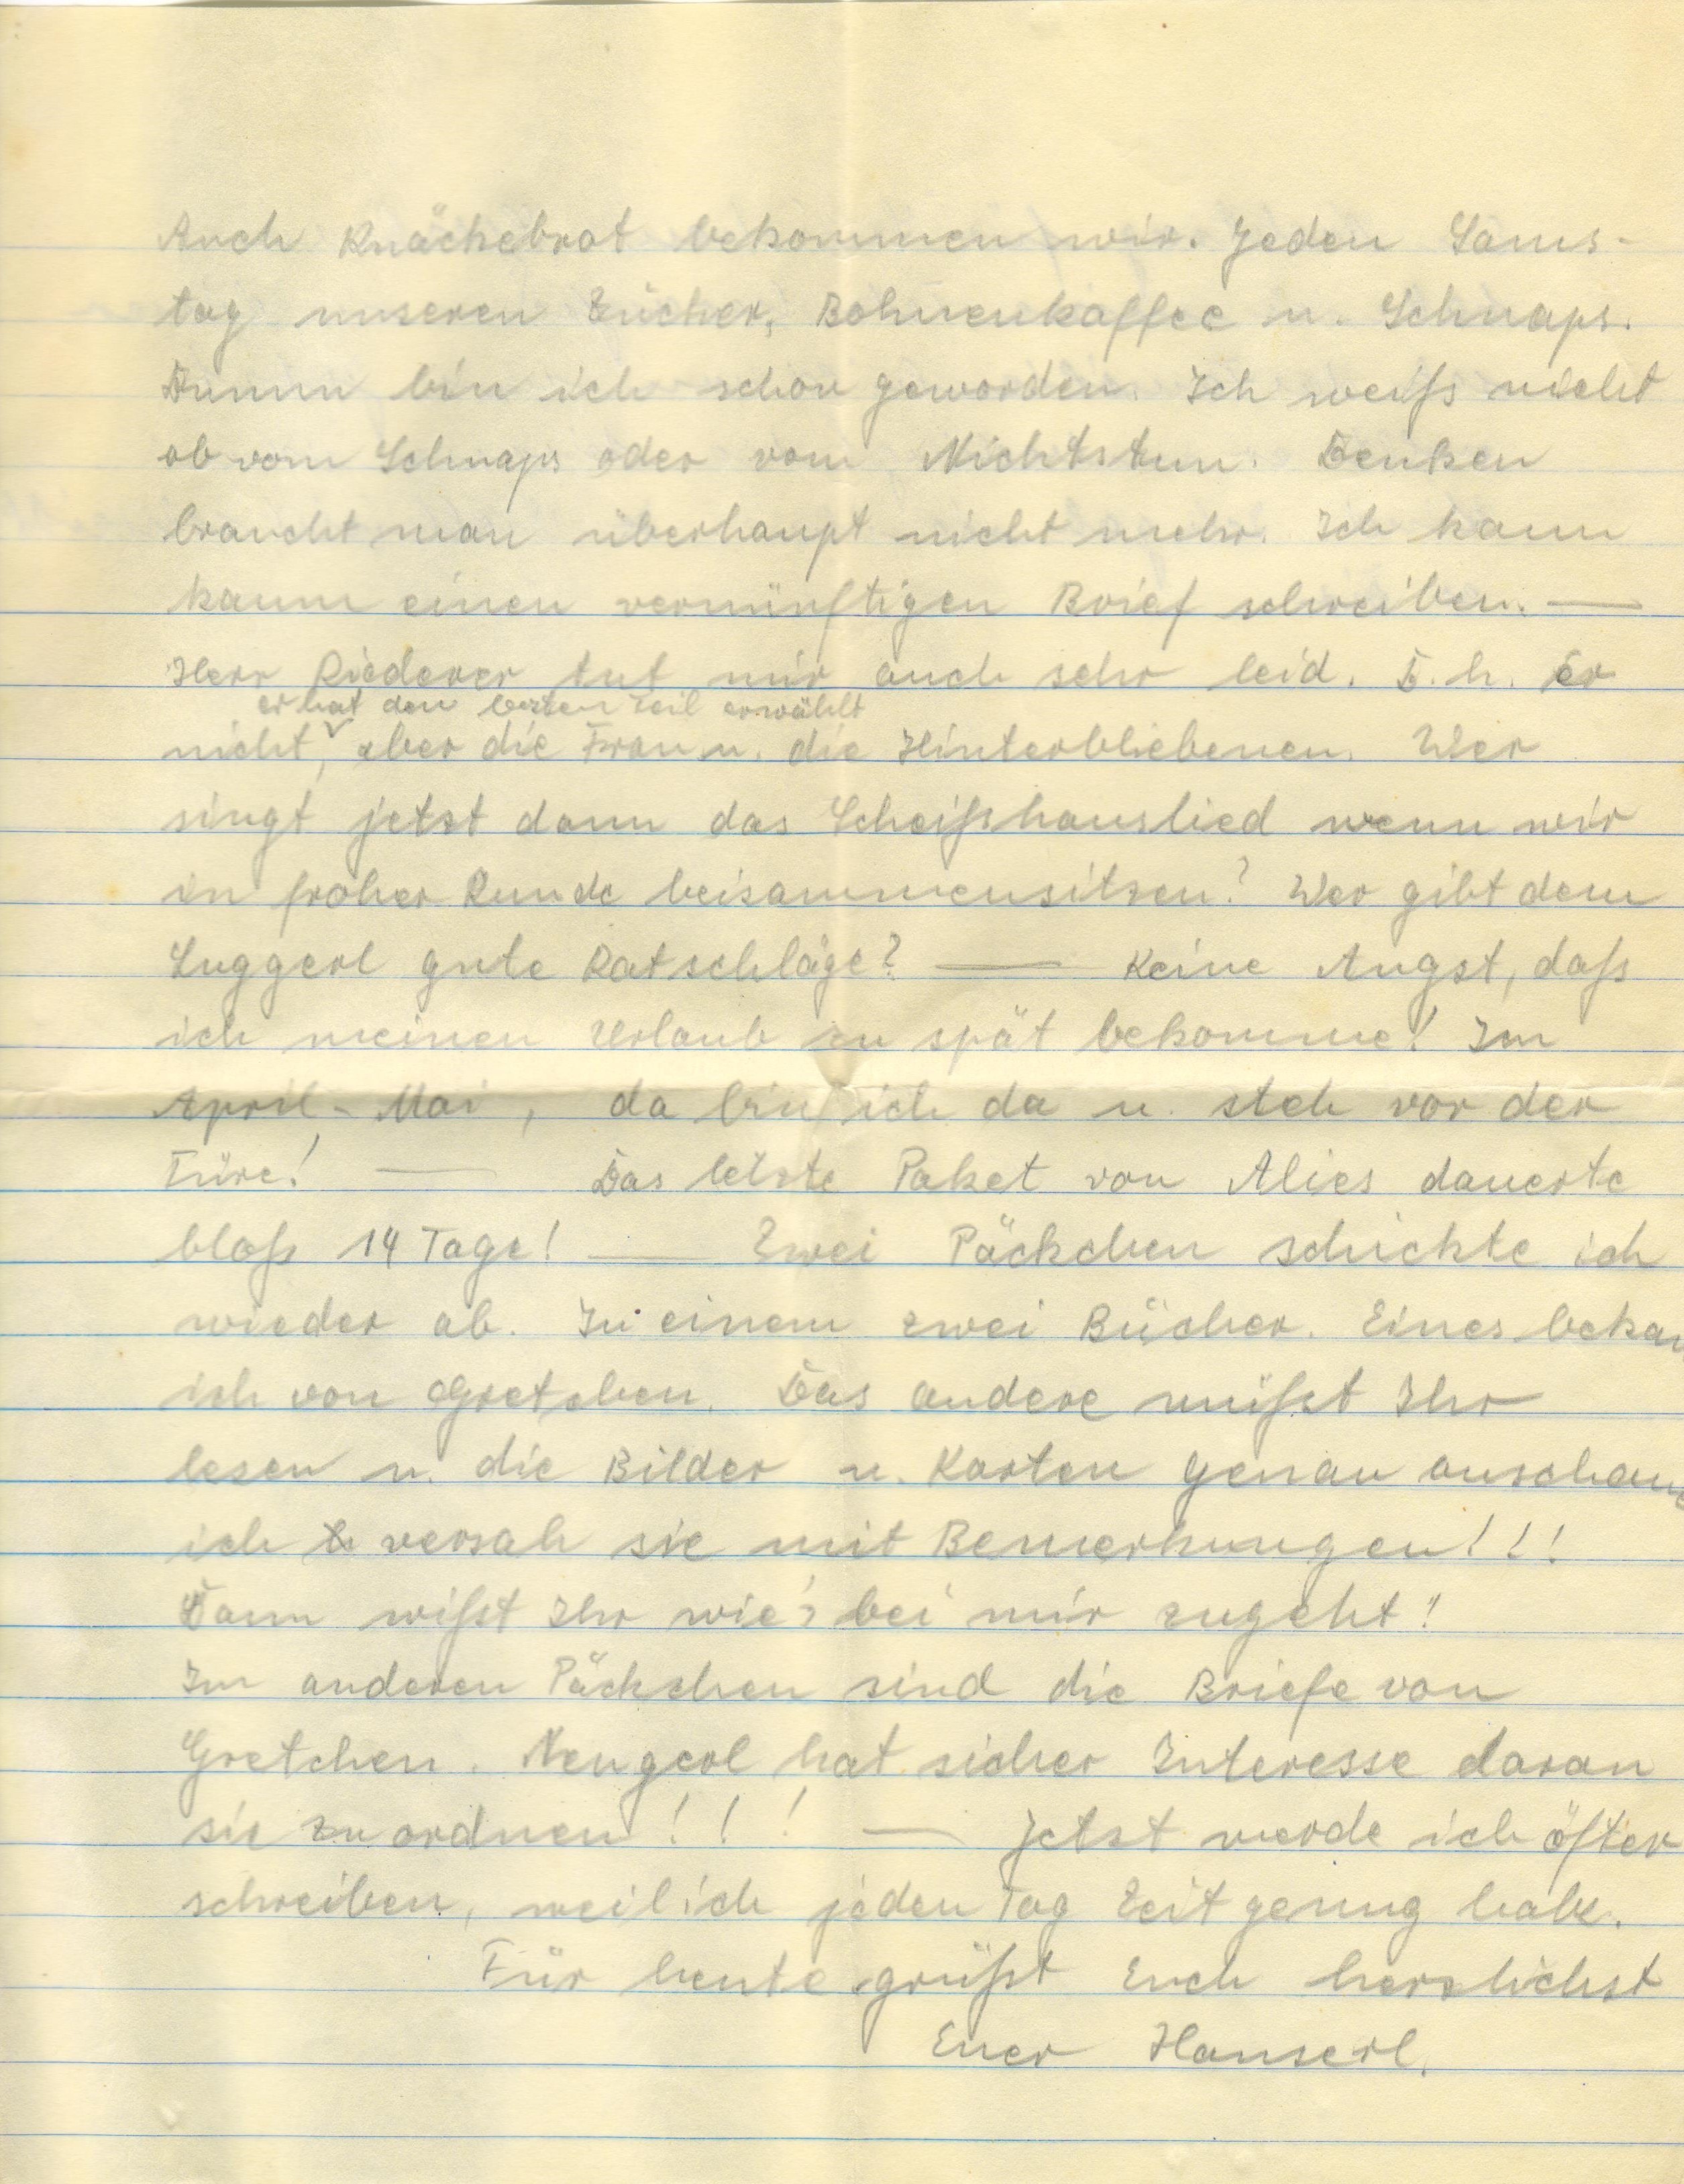 Auch Knäckebrot bekommen wir. Jeden Sams-
tag unseren Zucker, Bohnenkaffee u. Schnaps.
Dumm bin ich schon geworden. Ich weiß nicht
ob vom Schnaps oder vom Nichtstun. Denken
braucht man überhaupt nicht mehr. Ich kann
kaum einen vernünftigen Brief schreiben. —
Herr Riederer tut mir auch sehr leid. D.h. er
er hat den besten Teil erwählt
nicht, aber die Frau u. die Hinterbliebenen. Wer
singt jetzt dann das Scheißhauslied wenn wir
in froher Runde beisammensitzen? Wer gibt dem
Luggerl gute Ratschläge? — Keine Angst, daß
ich meinen Urlaub zu spät bekomme! Im
April - Mai, da bin ich da u. steh vor der
Türe! — Das letzte Paket von Alies dauerte
bloß 14 Tage! — Zwei Päckchen schickte ich
wieder ab. In einem zwei Bücher. Eines bekam
ich von Gretchen. Das andere müßt Ihr
lesen u. die Bilder u. Karten genau anschauen
ich versah sie mit Bemerkungen!!!
Dann wißt Ihr wie's bei mir zugeht!
Im anderen Päckchen sind die Briefe von
Gretchen. Neugerl hat sicher Interesse daran
sie zu ordnen!!! — Jetzt werde ich öfter
schreiben, weil ich jeden Tag Zeit genug habe.
Für heute grüßt Euch herzlichst
Euer Hanserl.